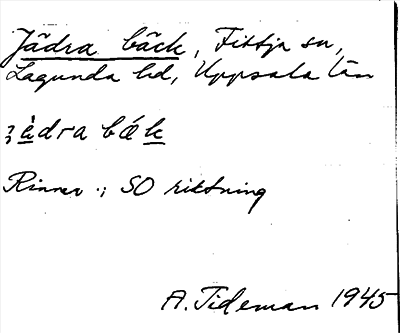 Jädra bäck, Fittja sn,
Lagunda hd, Uppsala län
ʒàdra bǽk
Rinner i SO riktning
A. Tideman 1945